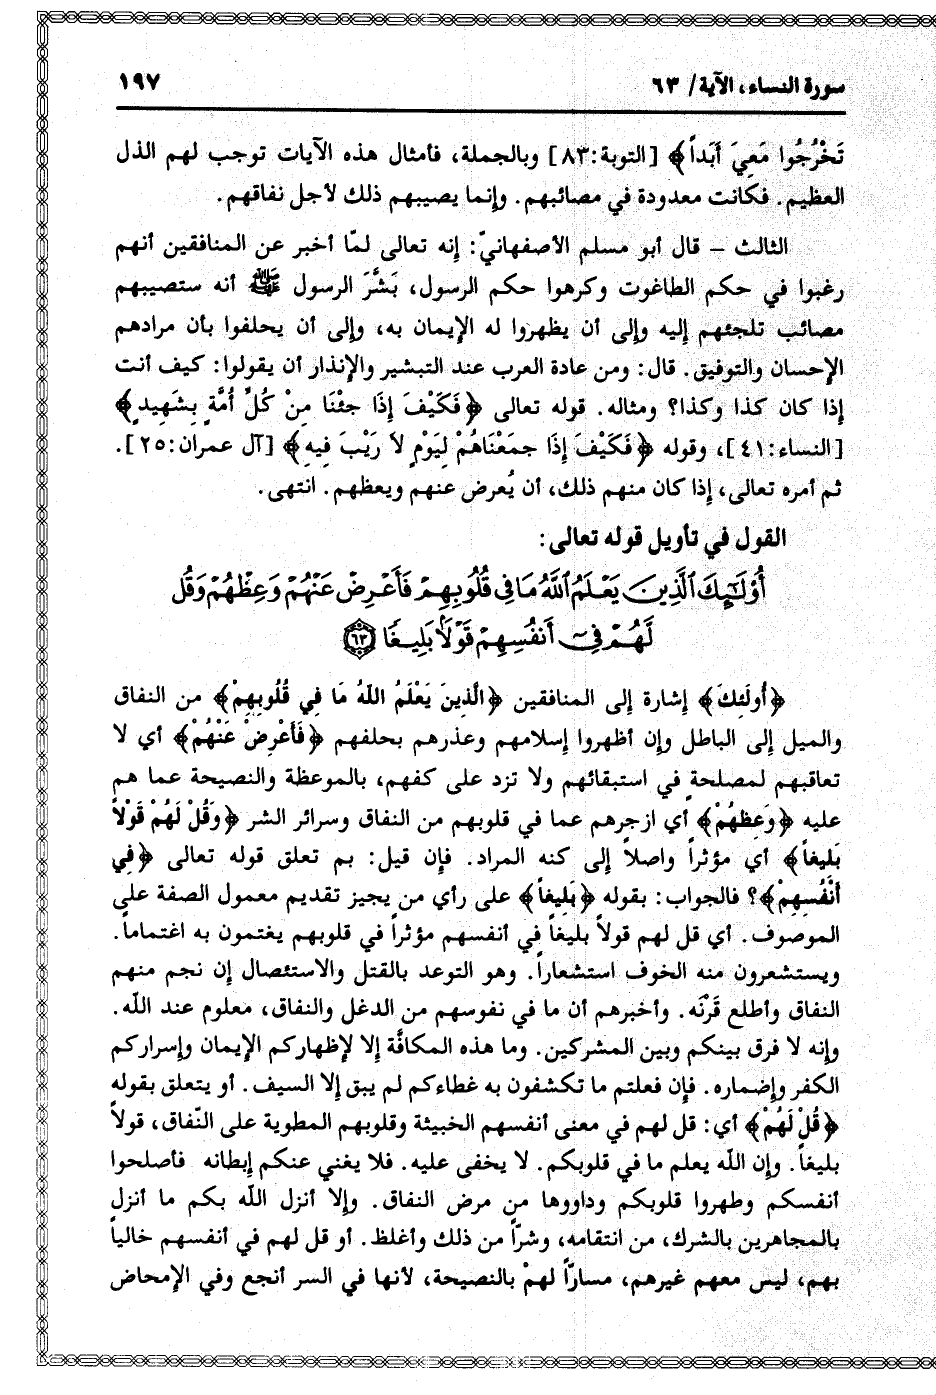 سورة النساء، الآية/ ٦٣
١٩٧
تَخْرُجُوا مَعِيَ أَبَداً﴾ [التوبة:٨٣] وبالجملة، فأمثال هذه الآيات توجب لهم الذل
العظيم. فكانت معدودة في مصائبهم. وإنما يصيبهم ذلك لأجل نفاقهم.
الثالث – قال أبو مسلم الأصفهانيّ: إنه تعالى لمّا أخبر عن المنافقين أنهم
رغبوا في حكم الطاغوت وكرهوا حكم الرسول، بَشَّرَ الرسول ﷺ أنه ستصيبهم
مصائب تلجئهم إليه وإلى أن يظهروا له الإيمان به، وإلى أن يحلفوا بأن مرادهم
الإحسان والتوفيق. قال: ومن عادة العرب عند التبشير والإنذار أن يقولوا: كيف أنت
إذا كان كذا وكذا؟ ومثاله. قوله تعالى ﴿فَكَيْفَ إِذَا جِئْنَا مِنْ كُلِّ أُمَّةٍ بِشَهِيدٍ﴾
[النساء:٤١]، وقوله ﴿فَكَيْفَ إِذَا جمَعْنَاهُمْ لِيَوْمٍ لاَ رَيْبَ فِيهِ﴾ [آل عمران:٢٥].
ثم أمره تعالى، إذا كان منهم ذلك، أن يُعرض عنهم ويعظهم. انتهى.
القول في تأويل قوله تعالى:
أُوْلَٰٓئِكَ ٱلَّذِينَ يَعْلَمُ ٱللَّهُ مَا فِي قُلُوبِهِمْ فَأَعْرِضْ عَنْهُمْ وَعِظْهُمْ وَقُل
لَّهُمْ فِيٓ أَنفُسِهِمْ قَوْلًا بَلِيغًا ٦٣
﴿أُولَئِكَ﴾ إشارة إلى المنافقين ﴿الَّذِينَ يَعْلَمُ اللَّهُ مَا فِي قُلُوبِهِمْ﴾ من النفاق
والميل إلى الباطل وإن أظهروا إسلامهم وعذرهم بحلفهم ﴿فَأَعْرِضْ عَنْهُمْ﴾ أي لا
تعاقبهم لمصلحةٍ في استبقائهم ولا تزد على كفهم، بالموعظة والنصيحة عما هم
عليه ﴿وَعِظْهُمْ﴾ أي ازجرهم عما في قلوبهم من النفاق وسرائر الشر ﴿وَقُلْ لَهُمْ قَوْلاً
بَلِيغاً﴾ أي مؤثراً واصلاً إلى كنه المراد. فإن قيل: بم تعلق قوله تعالى ﴿فِي
أَنْفُسِهِمْ﴾؟ فالجواب: بقوله ﴿بَلِيغاً﴾ على رأي من يجيز تقديم معمول الصفة على
الموصوف. أي قل لهم قولاً بليغاً في أنفسهم مؤثراً في قلوبهم يغتمون به اغتماماً.
ويستشعرون منه الخوف استشعاراً. وهو التوعد بالقتل والاستئصال إن نجم منهم
النفاق وأطلع قَرْنَه. وأخبرهم أن ما في نفوسهم من الدغل والنفاق، معلوم عند اللّه.
وإنه لا فرق بينكم وبين المشركين. وما هذه المكافَّة إلا لإظهاركم الإيمان وإسراركم
الكفر وإضماره. فإن فعلتم ما تكشفون به غطاءكم لم يبق إلا السيف. أو يتعلق بقوله
﴿قُلْ لَهُمْ﴾ أي: قل لهم في معنى أنفسهم الخبيثة وقلوبهم المطوية على النّفاق، قولاً
بليغاً. وإن اللّه يعلم ما في قلوبكم. لا يخفى عليه. فلا يغني عنكم إبطانه فأصلحوا
أنفسكم وطهروا قلوبكم وداووها من مرض النفاق. وإلا أنزل اللّه بكم ما أنزل
بالمجاهرين بالشرك، من انتقامه، وشرّاً من ذلك وأغلظ. أو قل لهم في أنفسهم خالياً
بهم، ليس معهم غيرهم، مسارّاً لهمْ بالنصيحة، لأنها في السر أنجع وفي الإمحاض